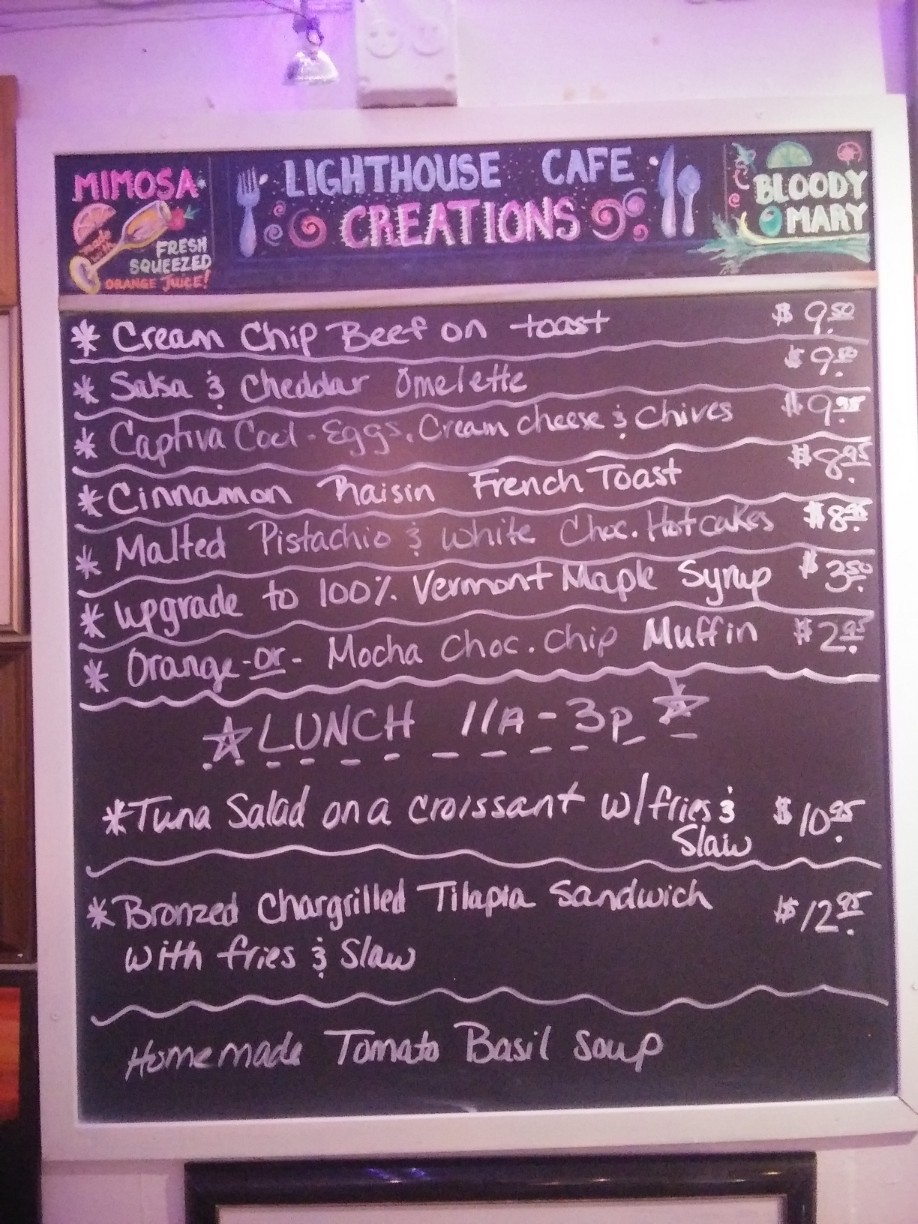 MIMOSA
made with
FRESH
SQUEEZED
ORANGE JUICE!
LIGHTHOUSE CAFE
CREATIONS
BLOODY
MARY
* Cream Chip Beef on toast $9.50
* Salsa & Cheddar Omelette $9.50
* Captiva Cool - Eggs, Cream cheese & Chives $9.95
* Cinnamon Raisin French Toast $8.95
* Malted Pistachio & White Choc. Hotcakes $8.95
* upgrade to 100% Vermont Maple Syrup $3.50
* Orange -or- Mocha Choc. Chip Muffin $2.95
☆ LUNCH 11A - 3P ☆
* Tuna Salad on a croissant w/fries & $10.95
Slaw
* Bronzed Chargrilled Tilapia Sandwich $12.95
with fries & Slaw
Homemade Tomato Basil Soup